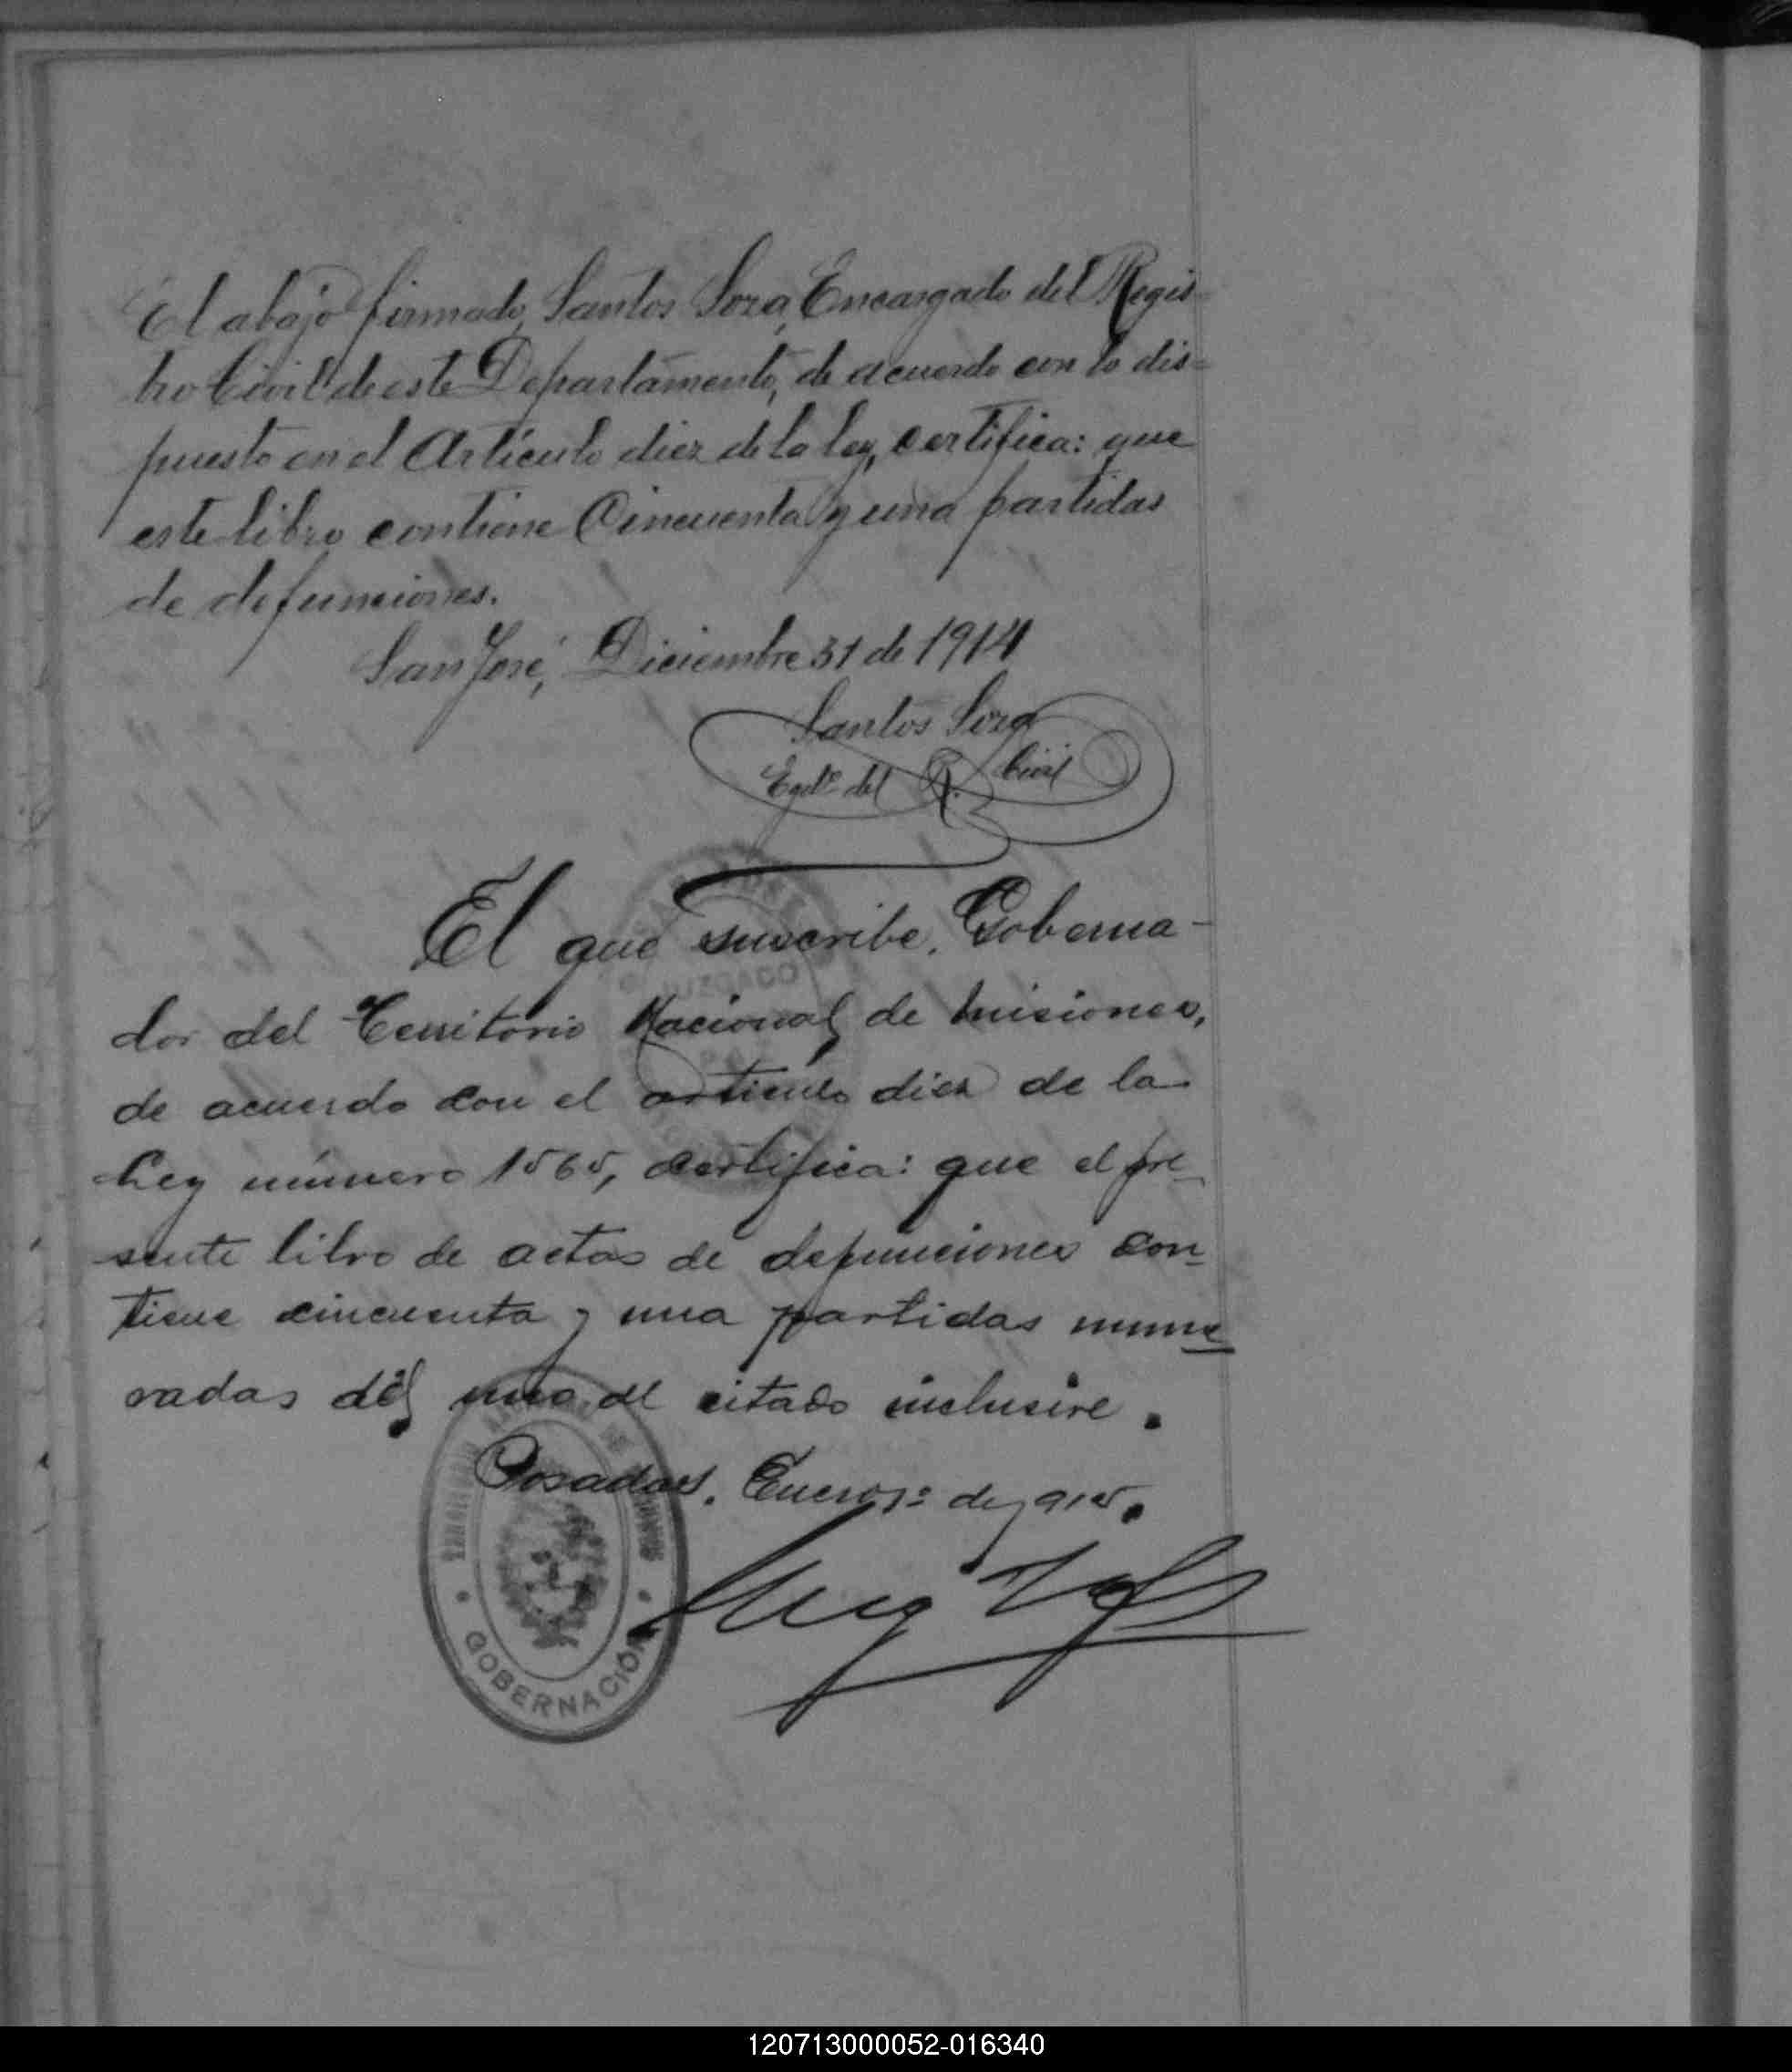 El abajo firmado, Santos Soza, Encargado del Regis-
tro Civil de este Departamento, de acuerdo con lo dis-
puesto en el Artículo diez de la ley, certifica: que
este libro contiene Cincuenta y una partidas
de defunciones.
San José, Diciembre 31 de 1914
Santos Soza
Egdo del R. Civil
JUZGADO
El que suscribe, Goberna-
dor del Territorio Nacional de Misiones,
de acuerdo con el artículo diez de la
Ley número 1565, certifica: que el pre-
sente libro de actas de defunciones con-
tiene cincuenta y una partidas nume
radas del uno al citado inclusive.
Posadas, Enero 1º de 915.
GOBERNACIÓN
120713000052-016340